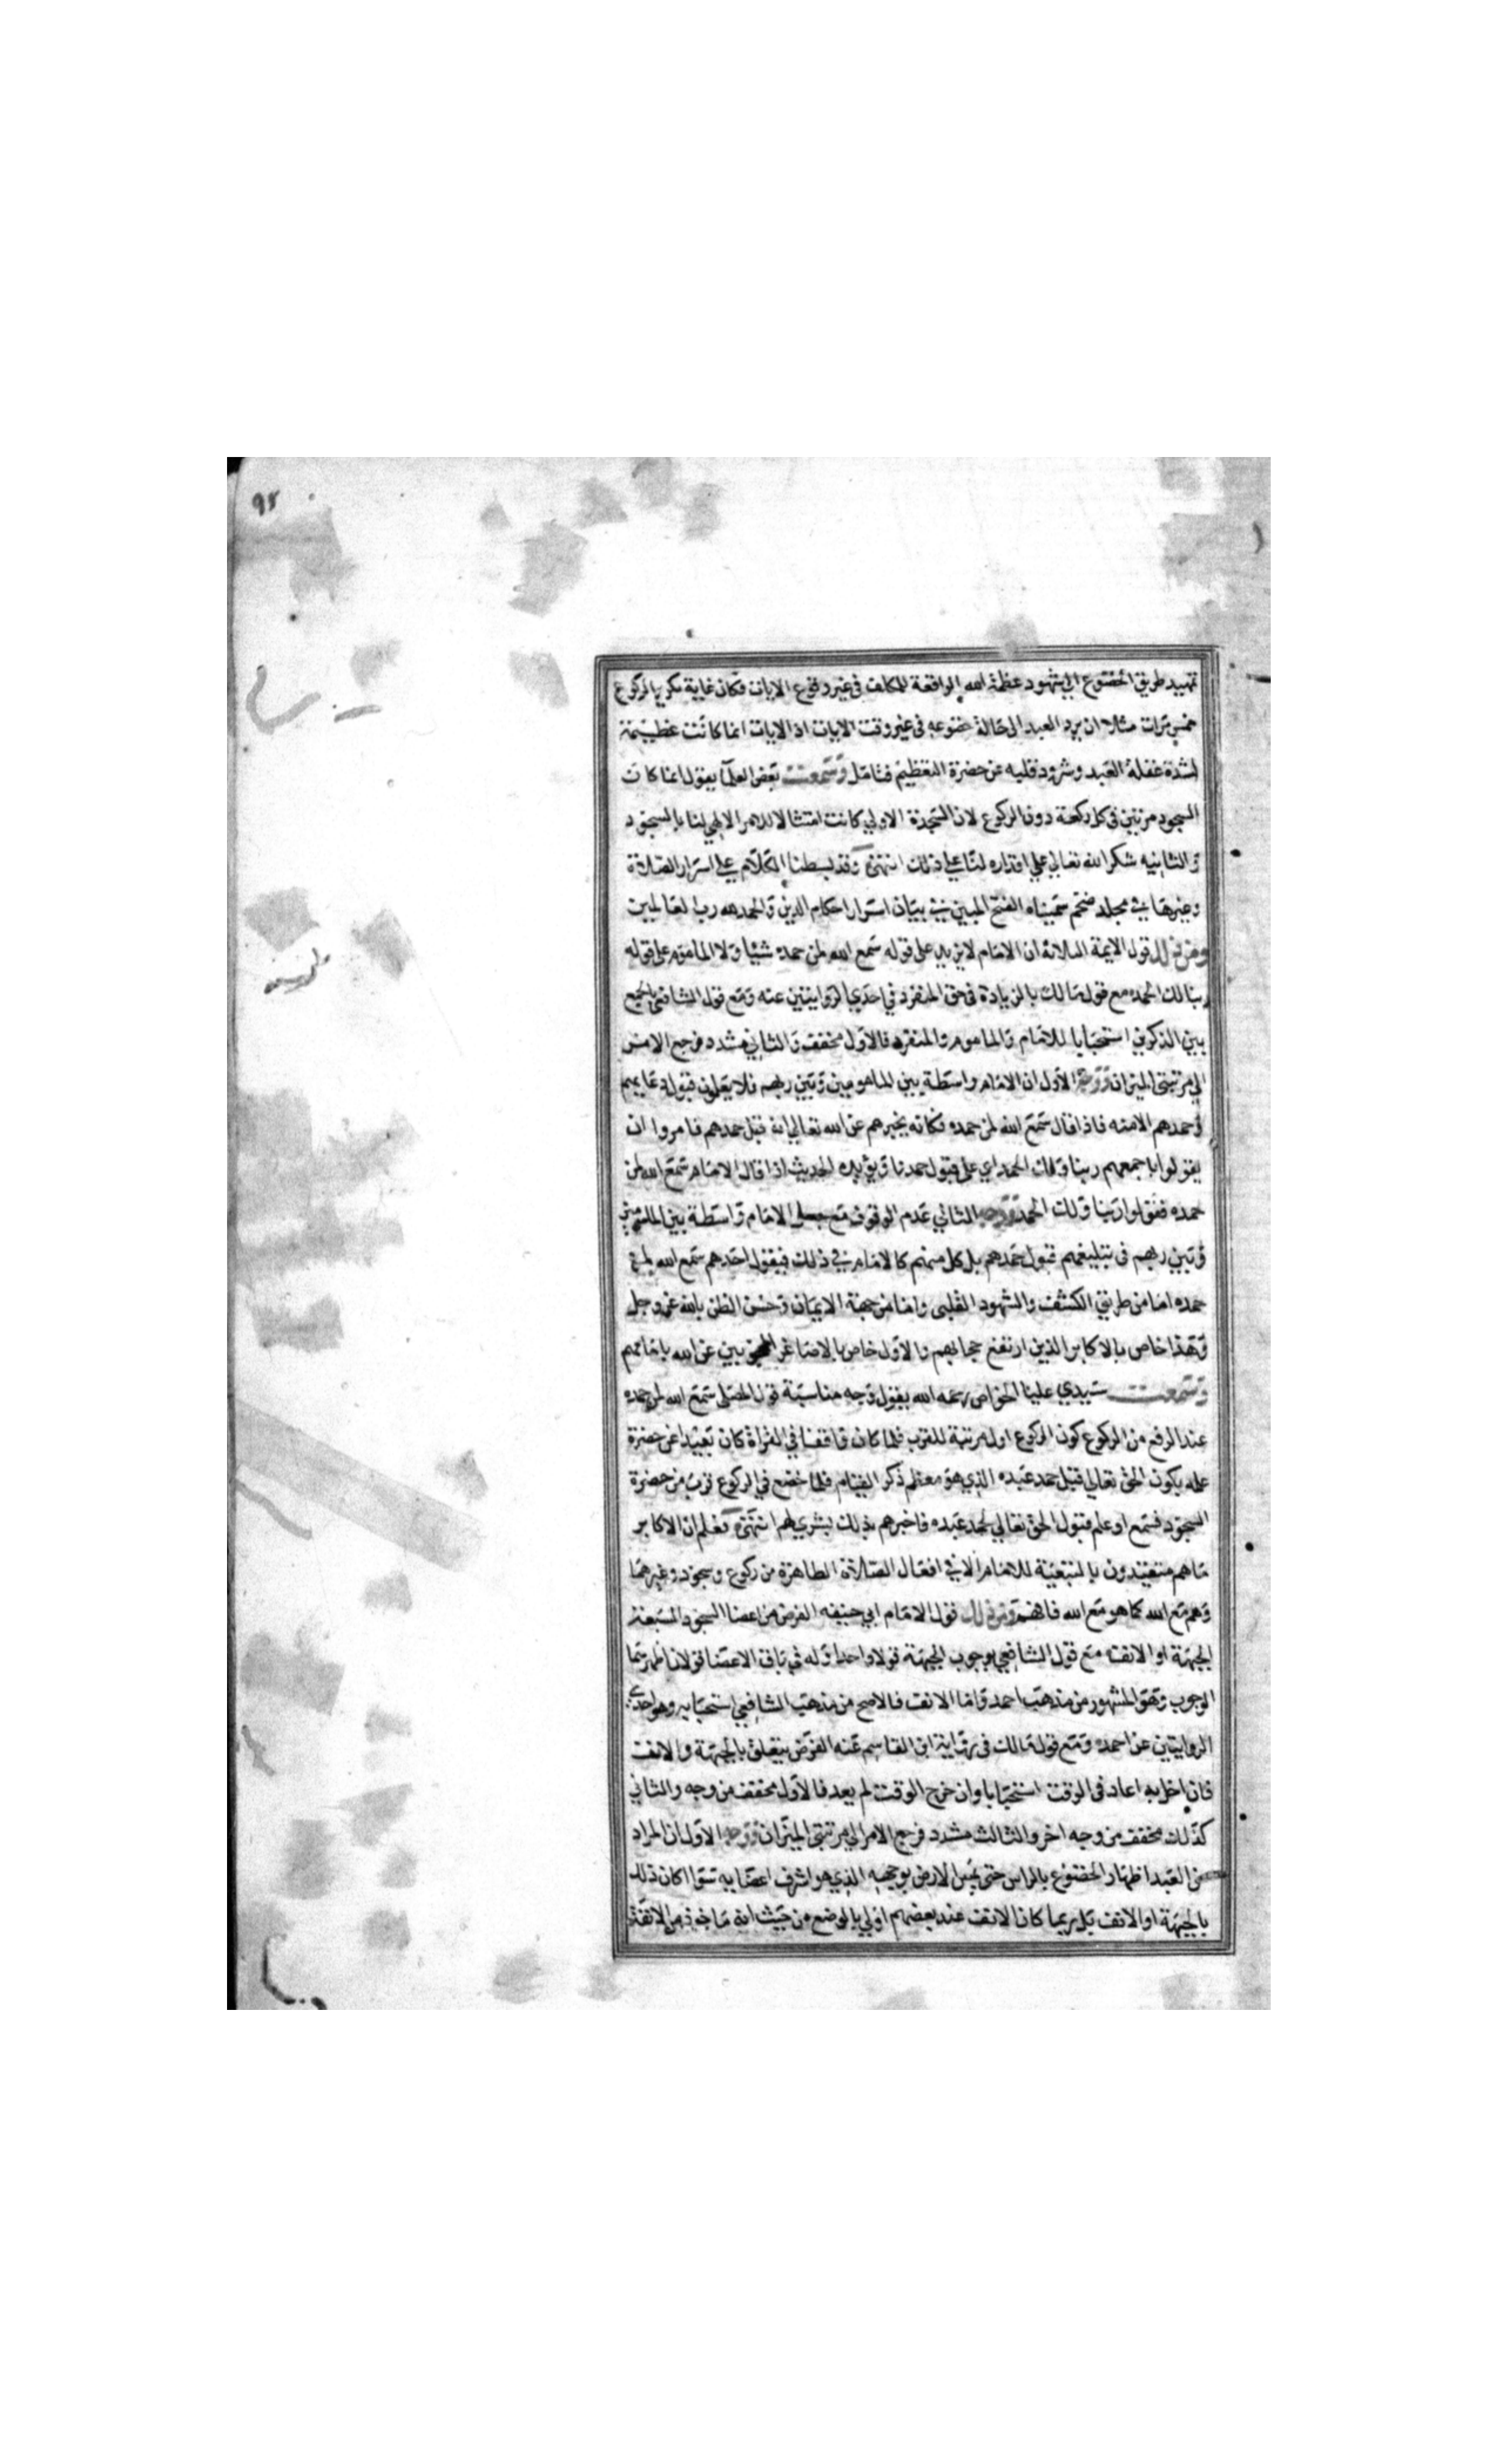 ٩٢
تمهيد طريق الخضوع الي شهود عظمة الله الواقعة للمكلف في غير وقوع الايات فكان غاية تكرير الركوع
خمس مرات مثلا ان يرد العبد الى حالة خضوعه في غير وقت الايات اذ الايات انما كانت عظيمة
لشدة غفلة العبد وشرود قلبه عن حضرة التعظيم فتامل وسمعت بعض العلما يقول انما كان
السجود مرتين في كل ركعة دون الركوع لان السجدة الاولي كانت امتثالا للامر الالهي لنا بالسجود
والثانيه شكر الله تعالي علي اقداره لنا علي ذلك انتهى وقد بسطنا الكلام علي اسرار الصلاة
وغيرها في مجلد ضخم سميناه الفتح المبين في بيان اسرار احكام الدين والحمد لله رب العالمين
ومن ذلك قول الايمة الثلاثة ان الامام لا يزيد على قوله سمع الله لمن حمده شيئا ولا الماموم على قوله
ربنا لك الحمد مع قول مالك بالزيادة في حق المنفرد في احدي الروايتين عنه ومع قول الشافعي بالجمع
بين الذكرين استحبابا للامام والماموم والمنفرد فالاول مخفف والثاني مشدد فرجع الامر
الي مرتبتي الميزان ووجه الاول ان الامام واسطة بين المامومين وبين ربهم فلا يعلمون قبول دعايهم
وحمدهم الا منه فاذا قال سمع الله لمن حمده فكانه يخبرهم عن الله تعالي انه قبل حمدهم فامروا ان
يقولوا باجمعهم ربنا ولك الحمد اي على قبول حمدنا ويؤيده الحديث اذا قال الامام سمع الله لمن
حمده فقولوا ربنا ولك الحمد ووجه الثاني عدم الوقوف مع جعل الامام واسطة بين المامومين
وبين ربهم في تبليغهم قبول حمدهم بل كل منهم كالامام في ذلك فيقول احدهم سمع الله لمن
حمده اما من طريق الكشف والشهود القلبى واما من جهة الايمان وحسن الظن بالله عز وجل
وهذا خاص بالاكابر الذين ارتفع حجابهم والاول خاص بالاصاغر المحجوبين عن الله بامامهم
وسمعت سيدي عليا الخواص رحمه الله يقول وجه مناسبة قول المصلى سمع الله لمن حمده
عند الرفع من الركوع كون الركوع اول مرتبة للقرب فلما كان واقفا في القراة كان بعيدا عن حضرة
علمه بكون الحق تعالي قبل حمد عبده الذي هو معظم ذكر القيام فلما خضع في الركوع قرب من حضرة
السجود فسمع او علم قبول الحق تعالي لحمد عبده فاخبرهم بذلك بشري لهم انتهى فعلم ان الاكابر
ما هم متقيدون بالتبعية للامام الا في افعال الصلاة الظاهرة من ركوع وسجود وغيرهما
وهم مع الله كما هو مع الله فافهم ومن ذلك قول الامام ابي حنيفه الفرض من اعضا السجود السبعة
الجبهة او الانف مع قول الشافعي بوجوب الجبهة قولا واحدا وله في باقى الاعضا قولان اظهرهما
الوجوب وهو المشهور من مذهب احمد واما الانف فالاصح من مذهب الشافعي استحبابه وهو احدى
الروايتين عن احمد ومع قول مالك في رواية ابن القاسم عنه الفرض يتعلق بالجبهة والانف
فان اخل به اعاد في الوقت استحبابا وان خرج الوقت لم يعد فالاول مخفف من وجه والثاني
كذلك مخفف من وجه اخر والثالث مشدد فرجع الامر الي مرتبتي الميزان ووجه الاول ان المراد
من العبد اظهار الخضوع بالراس حتى يمس الارض بوجهه الذي هو اشرف اعضايه سوا اكان ذلك
بالجبهة او الانف بل ربما كان الانف عند بعضهم اولي بالوضع من حيث انه ماخوذ من الانفة